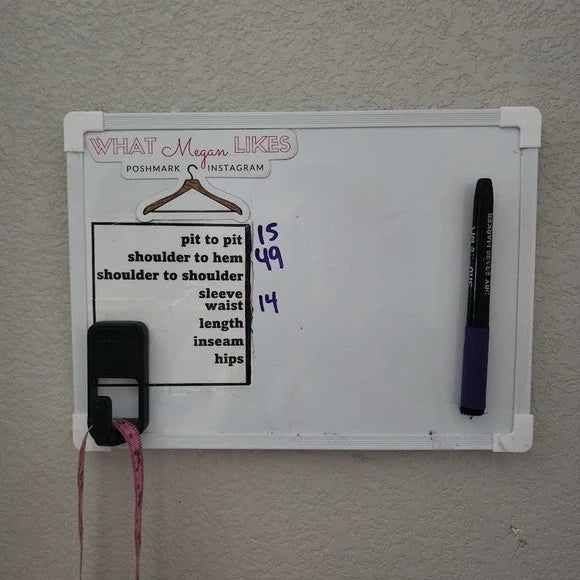 WHAT Megan LIKES
POSHMARK INSTAGRAM
pit to pit 15
shoulder to hem 49
shoulder to shoulder
sleeve
waist 14
length
inseam
hips
DRY ERASE MARKER